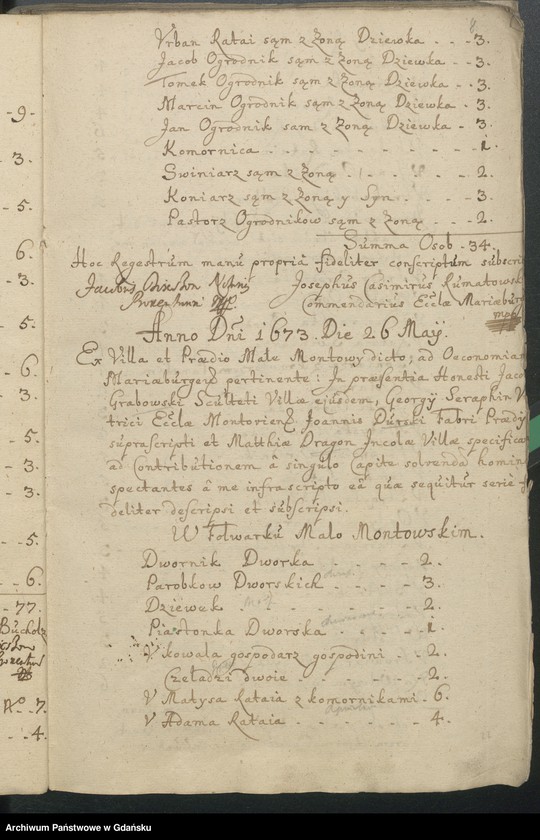 8
Vrban Ratai sąm z Zoną Dziewka - - - 3.
Jacob Ogrodnik sąm z Zoną Dziewka - - 3.
Tomek Ogrodnik sąm z Zoną Dziewka - - 3.
Marcin Ogrodnik sąm z Zoną Dziewka - 3.
Jan Ogrodnik sam z Zoną Dziewka - 3.
Komornica - - - - - - - 1.
Swiniarz sąm z Zoną - - - 2.
Koniarz sąm z Zoną y Syn - - 3.
Pastorz Ogrodnikow sąm z Zoną - - 2.
Summa Osob - 34.
Hoc Regestrum manu propria fideliter conscriptum subscri
Josephus Casimirus Rumatowsk
Commendarius Eccłæ Mariæbur
mpp
Anno Dni 1673. Die 26 Maij.
Ex Villa et Prædio Male Montowy dicto; ad Oeconomiam
Mariæburgen pertinente: In præsentia Honesti Jaco
Grabowski Sculteti Villæ ejusdem, Georgy Seraphin V
trici Eccłæ Montovien, Joannis Durski Fabri Prædy
suprascripti et Matthiæ Dragon Incolæ Villæ specificat
ad Contributionem â singulo Capite solvendã homin
spectantes â me infrascripto eã quæ sequitur serie f
deliter descripsi et subscripsi.
W Folwarku Malo Montowskim.
Dwornik Dworka - - - - 2.
Parobkow Dworskich - - - 3.
Dziewek - - - - - 2.
Piastonka Dworska - - - - 1.
V kowala gospodarz gospodini - - 2.
Czeladzi dwoie - - - - 2.
V Matysa Rataia z komornikami - 6.
V Adama Rataia - - - - 4.
- 9 -
3.
- 5.
6.
- 3.
5.
- 6.
3.
- 5.
- 3.
- 3.
- 5.
- 6.
- 77.
Bucholz
No. 7.
- 4.
Archiwum Państwowe w Gdańsku